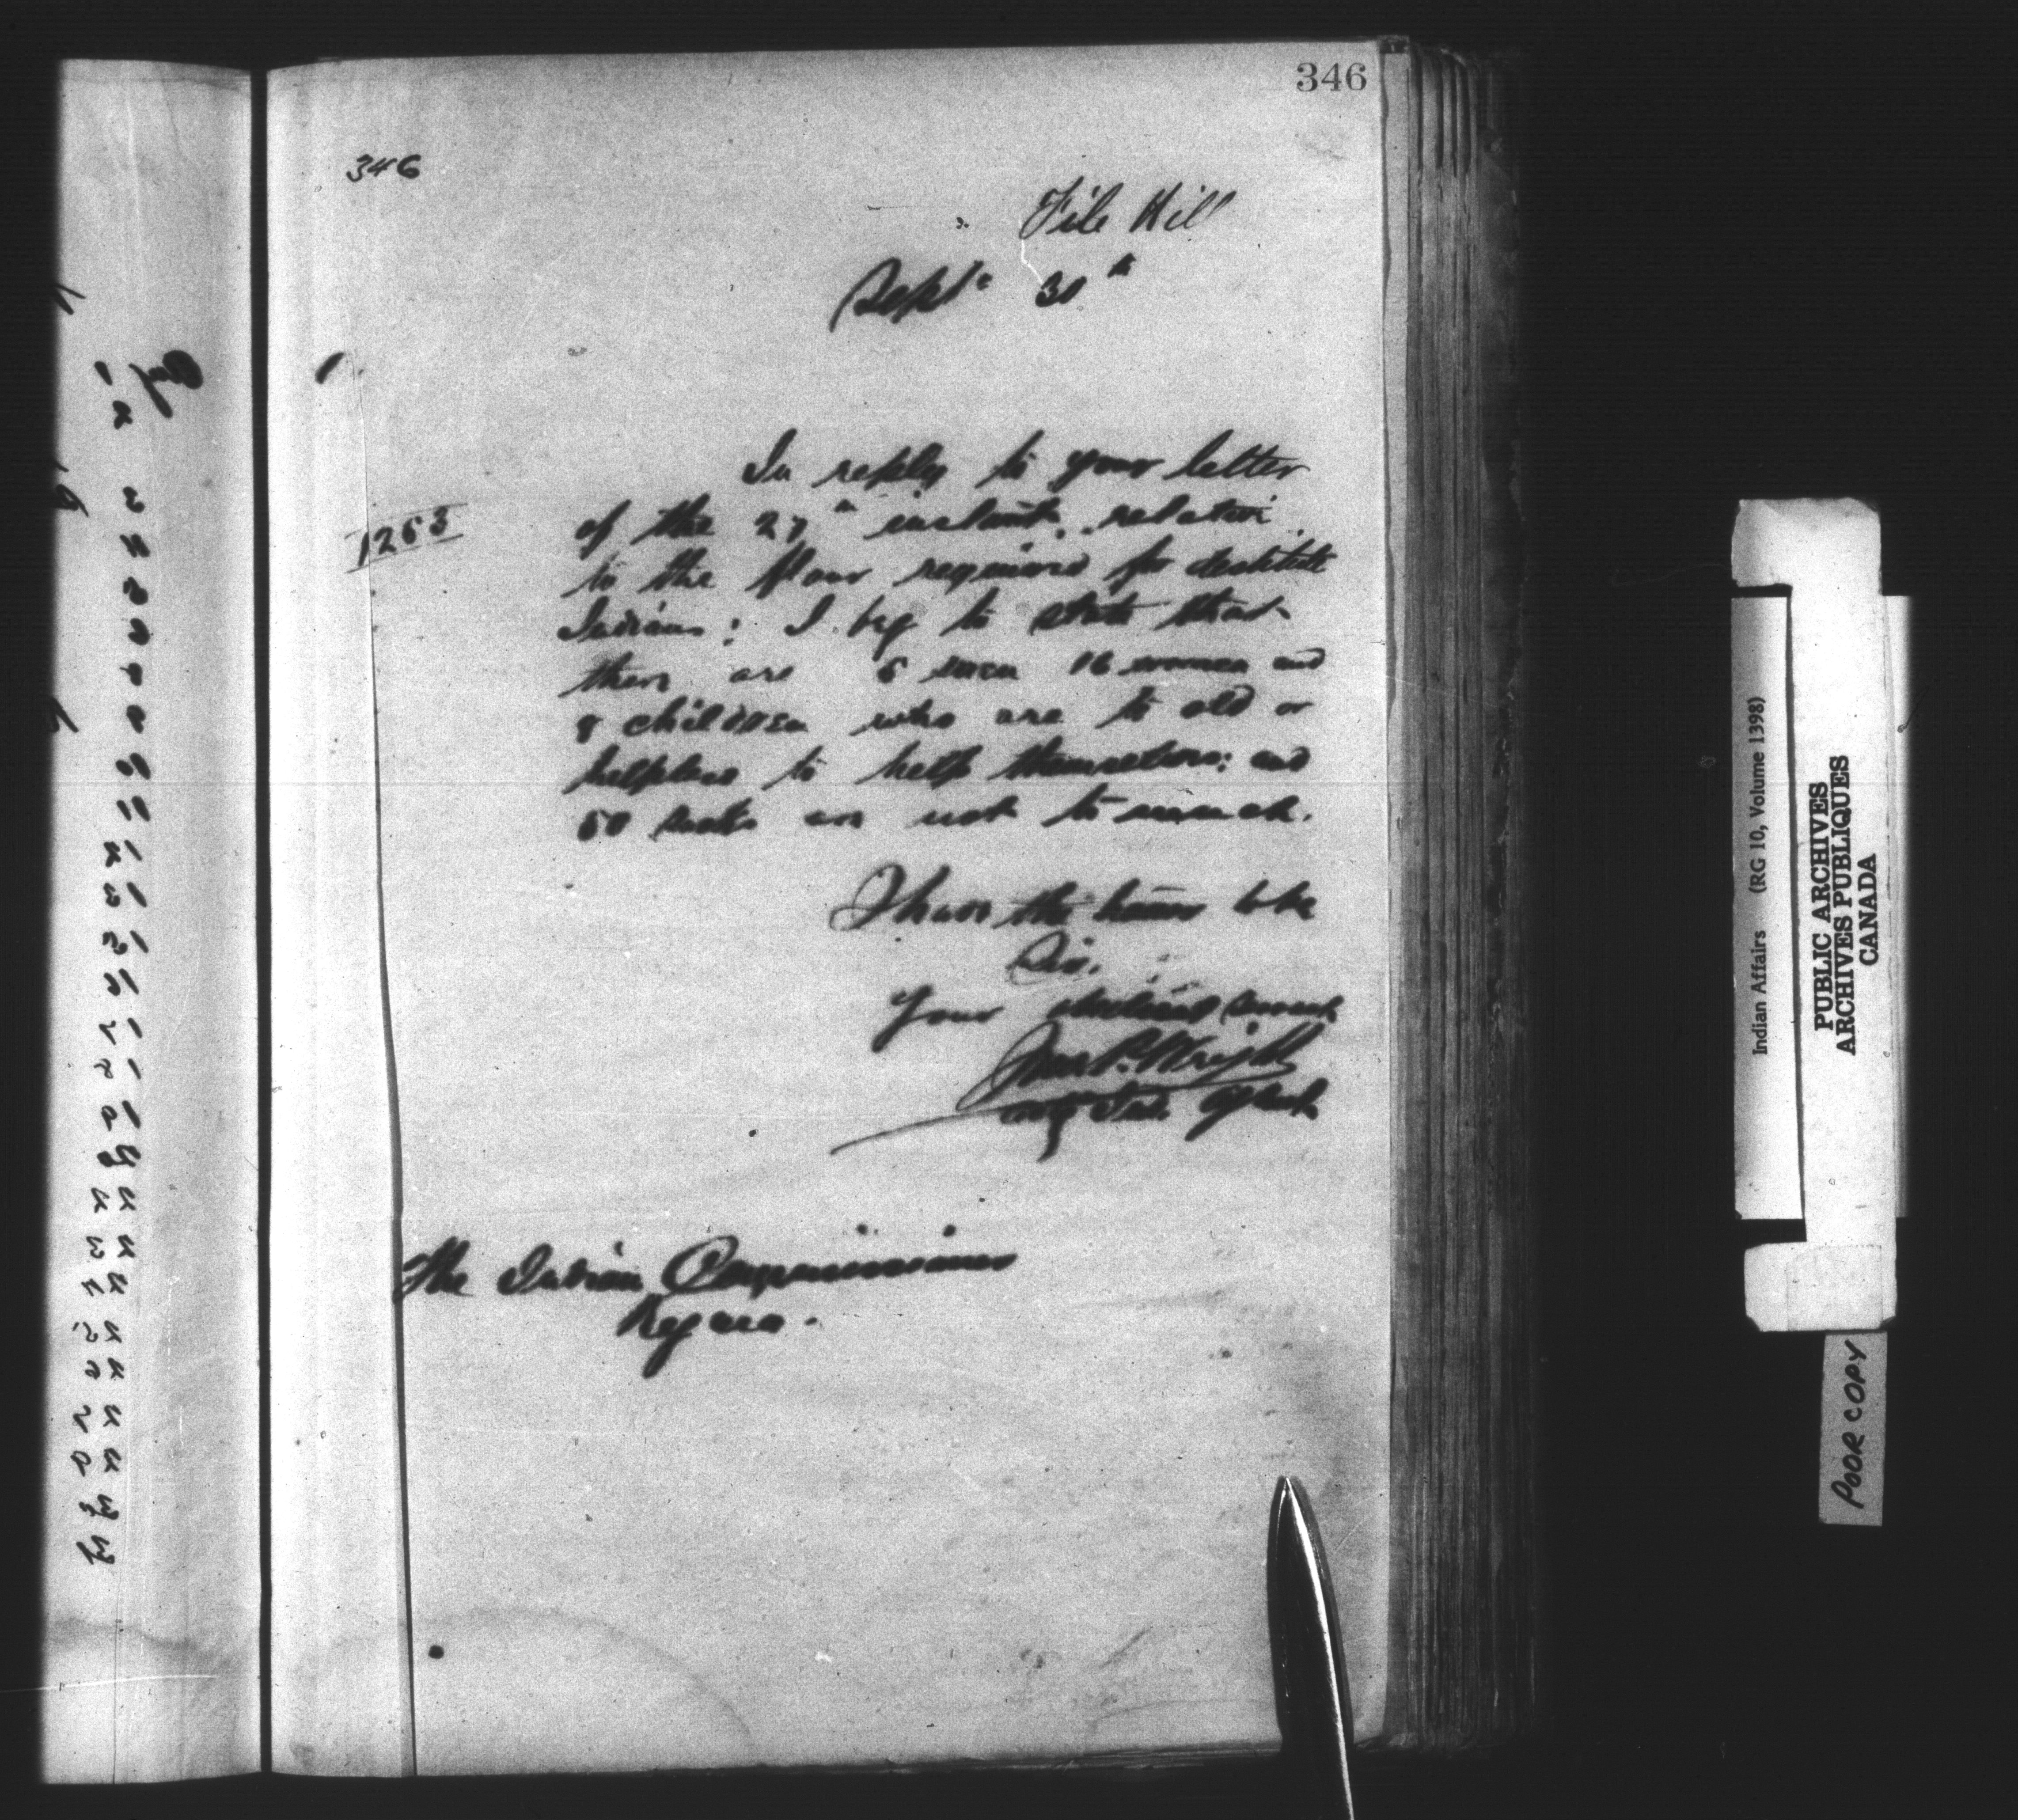 346
346
File Hill
Sept. 30th
1263
In reply to your letter
of the 27th instant, relative
to the flour required for destitute
Indians: I beg to state that
there are 6 men 16 women and
8 children who are to old or
helpless to help themselves: and
50 sacks are not to much.
I have the honor to be
Sir,
Your obedient servant
Jno. P. Wright
Ind. Agent
The Indian Commissioner
Regina.
Indian Affairs (RG 10, Volume 1398)
PUBLIC ARCHIVES
ARCHIVES PUBLIQUES
CANADA
POOR COPY